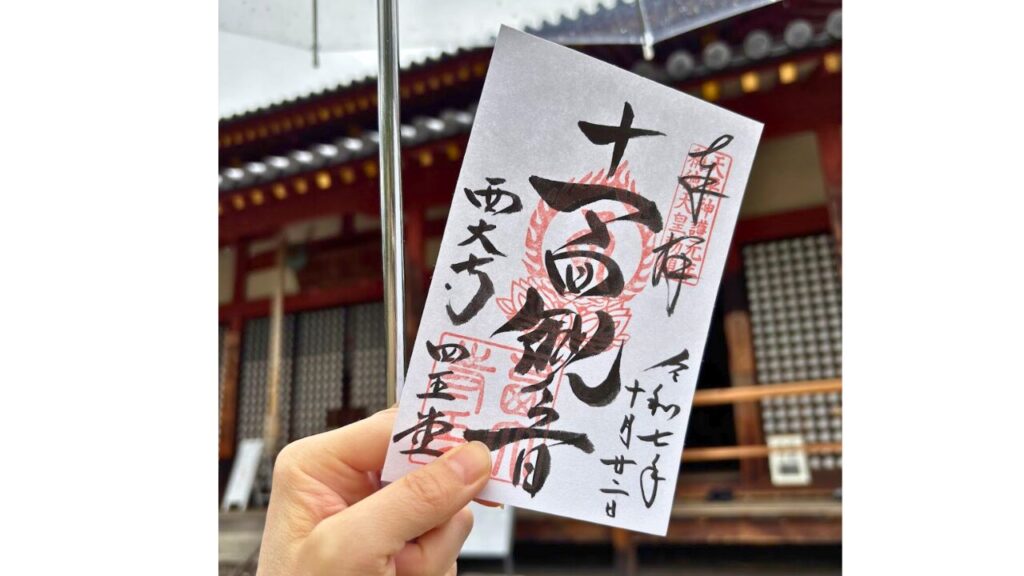 奉拝
天平神護元年
令和七年
十月廿二日
十一面観音
西大寺
四王堂